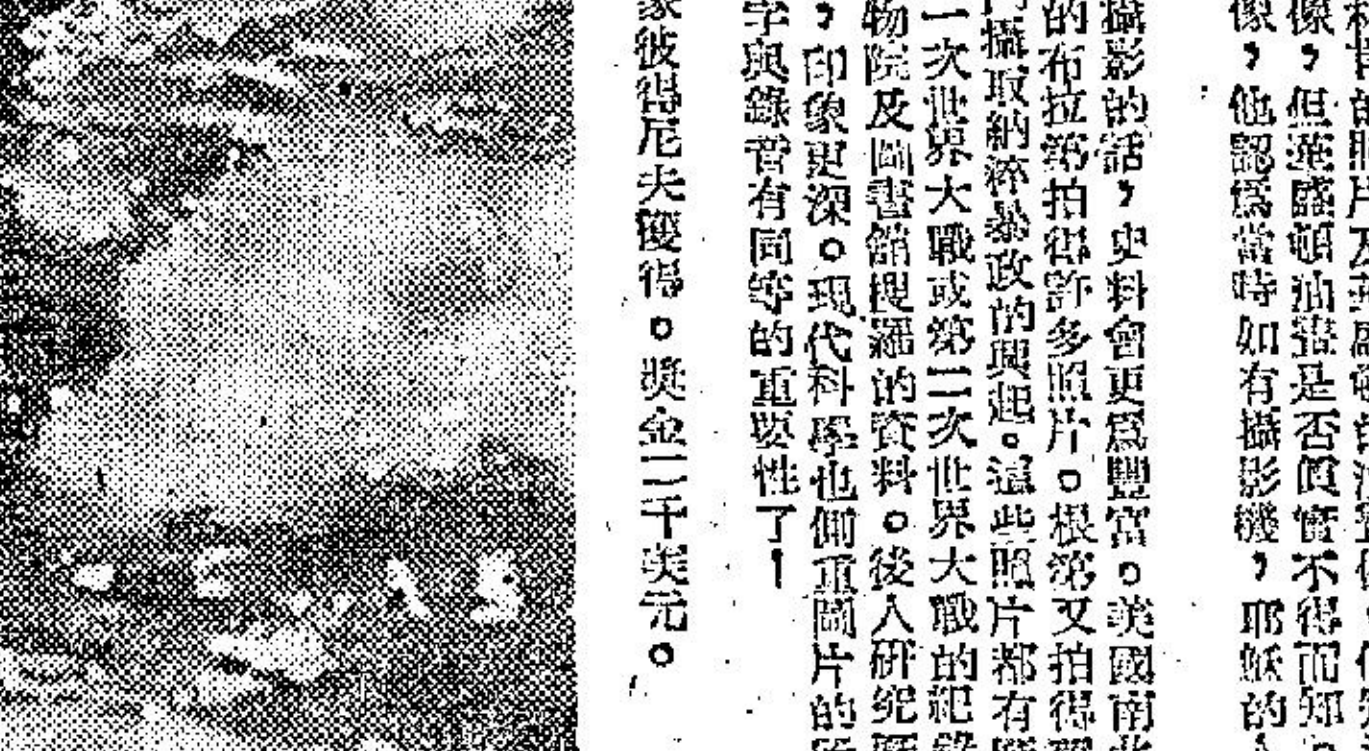 像，但華盛頓油畫是否眞實不得而知
像，他認爲當時如有攝影機，耶穌的
攝影的話，史料會更爲豐富。美國南北
的布拉第拍得許多照片。根第又拍得
攝取納粹暴政的興起。這些照片都有
一次世界大戰或第二次世界大戰的紀錄
物院及圖書館搜羅的資料。後人研究
，印象更深。現代科學也側重圖片的
字與錄音有同等的重要性了！
家彼得尼夫獲得。獎金二千美元。